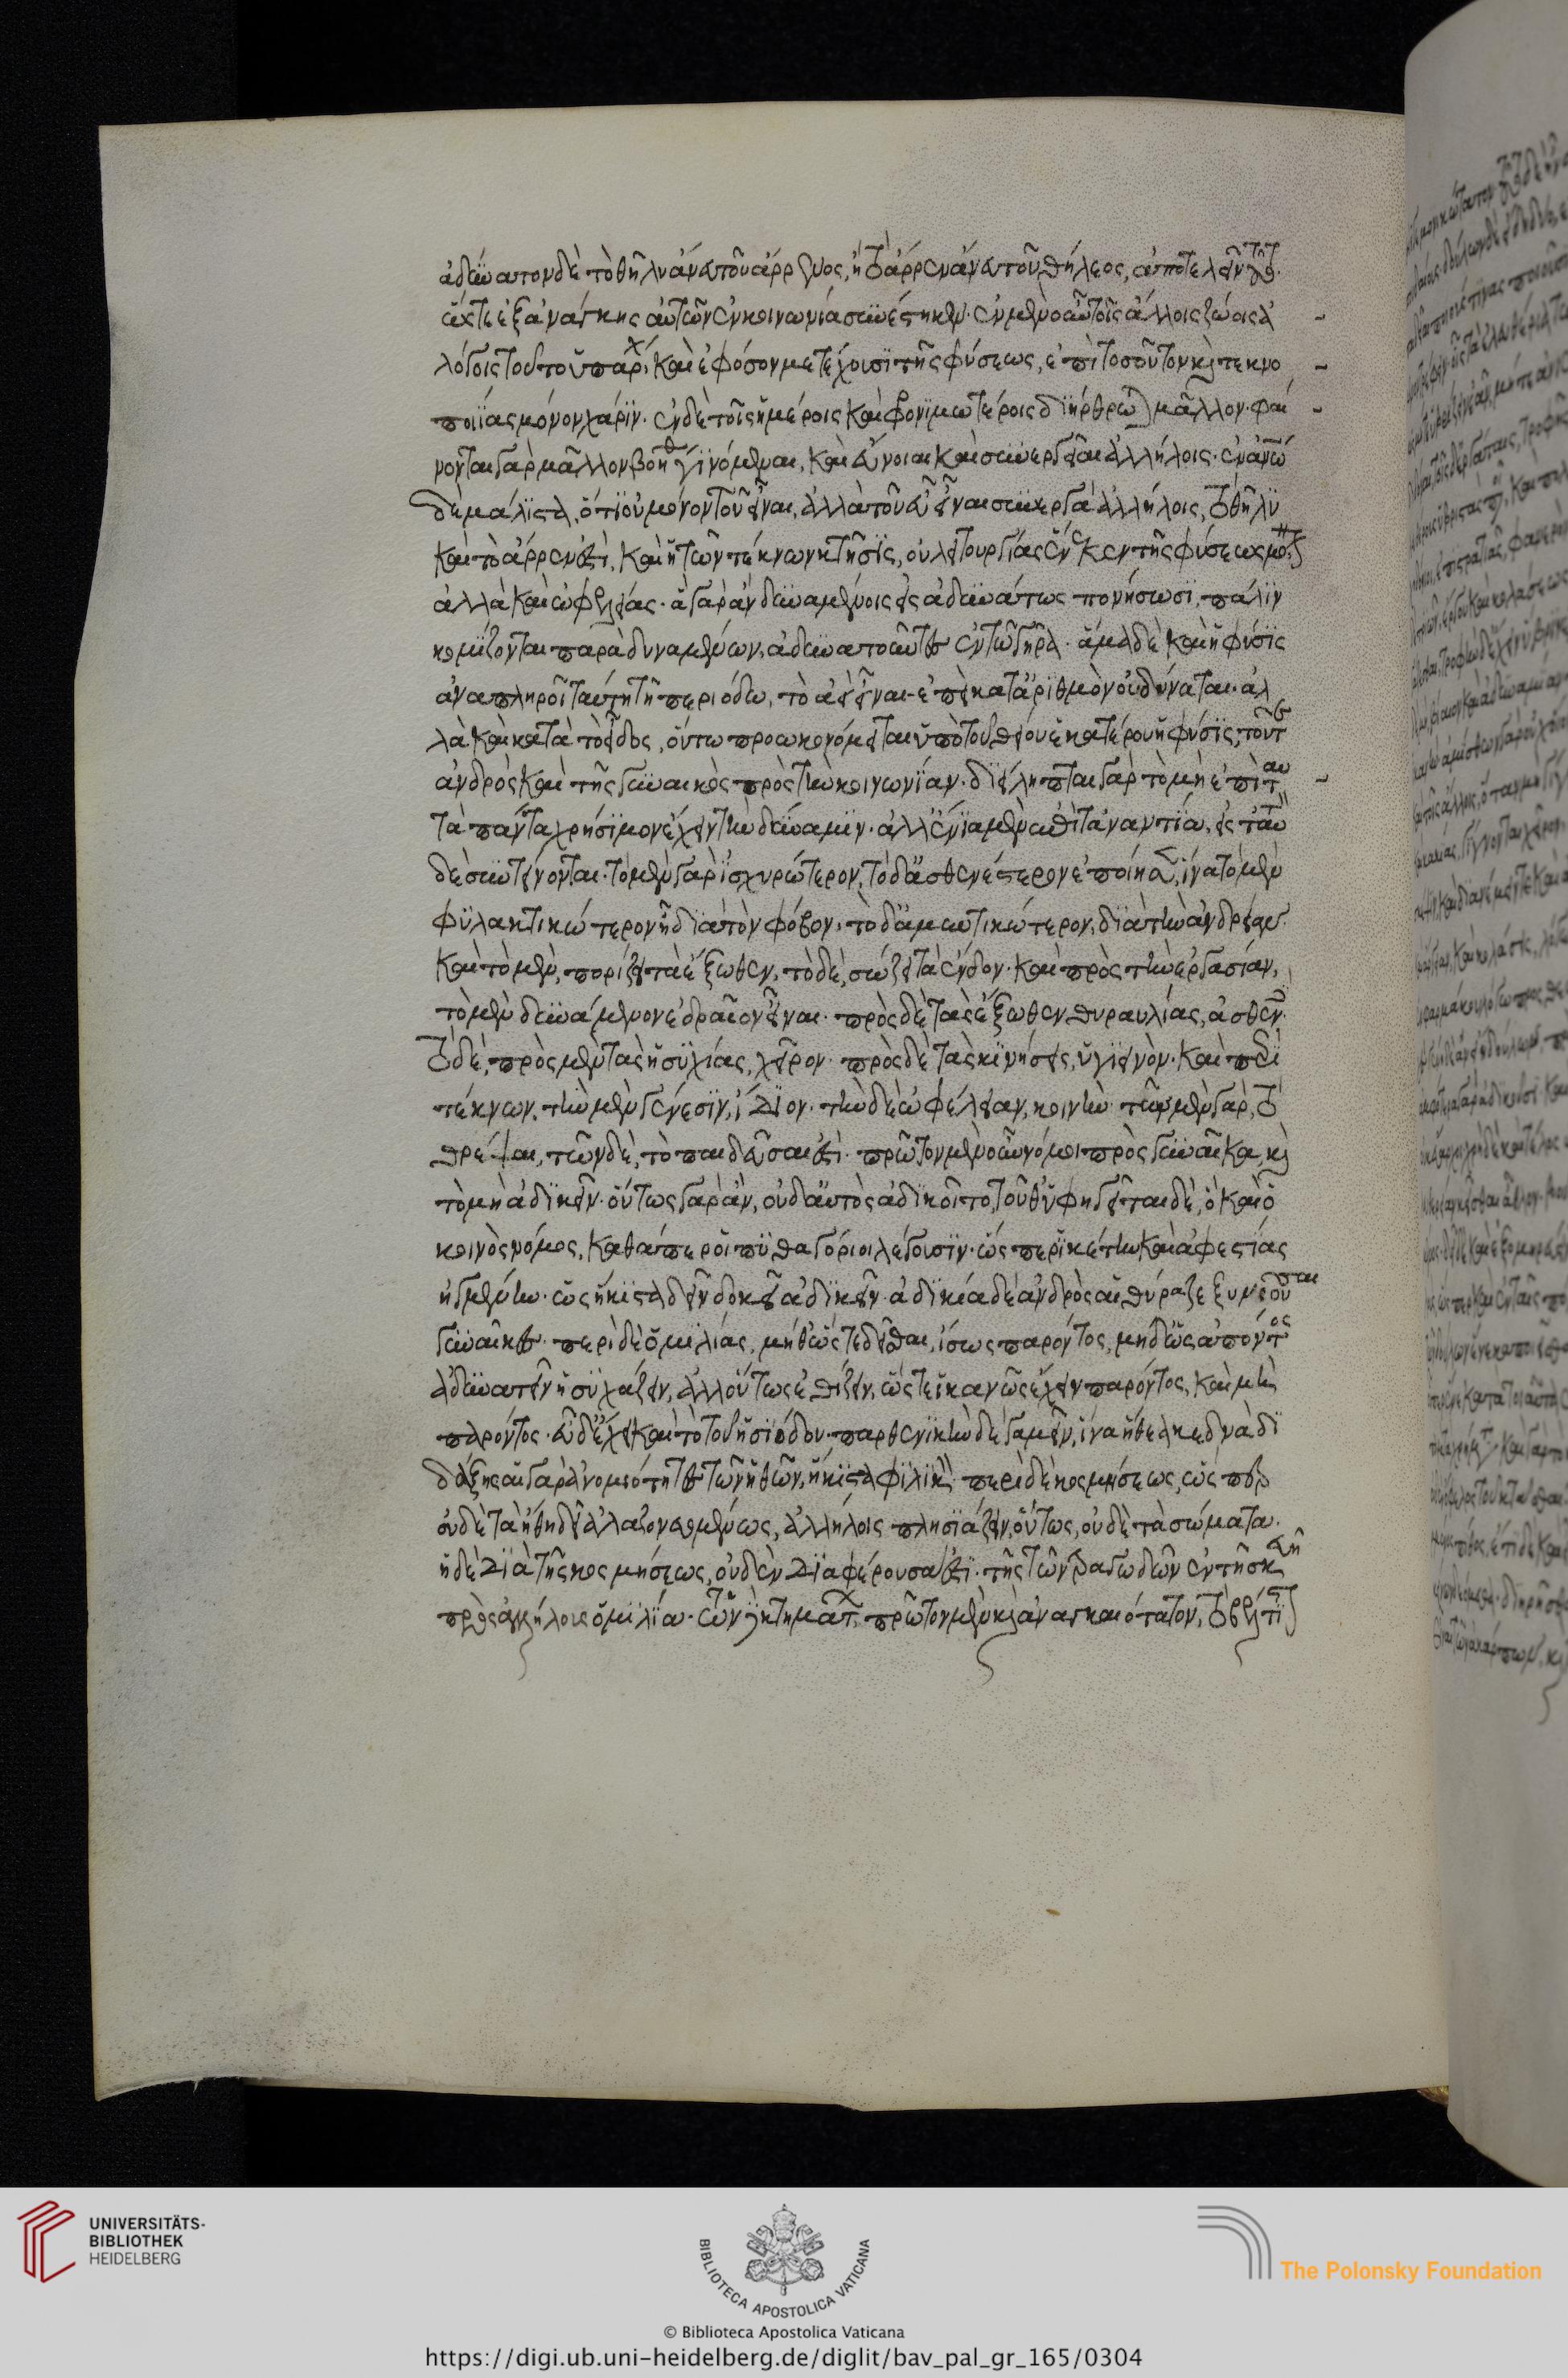 ἀδύνατον δὲ τὸ θῆλυ ἄνευ τοῦ ἄρρενος, ἢ τὸ ἄρρεν ἄνευ τοῦ θήλεος, ἀποτελεῖν τοῦτο.
ὥστε ἐξ ἀνάγκης αὐτῶν ἐν κοινωνία συνέστηκεν. ἐν μὲν οὖν τοῖς ἄλλοις ζώοις ἀ
λόγοις τοῦτο ὑπάρχει, καὶ ἐφόσον μετέχουσι τῆς φύσεως, ἐπὶ τοσοῦτον καὶ τεκνο
ποιίας μόνον χάριν. ἐν δὲ τοῖς ἡμέροις καὶ φρονιμωτέροις διήρθρωται μᾶλλον. φαί
νονται γὰρ μᾶλλον βοήθειαι γινόμεναι, καὶ εὔνοιαι καὶ συνεργεῖαι ἀλλήλοις. ἐν ἀνθρώπω
δὲ μάλιστα, ὅτι οὐ μόνον τοῦ εἶναι, ἀλλὰ τοῦ εὖ εἶναι συνεργὰ ἀλλήλοις, τὸ θῆλυ
καὶ τὸ ἄρρεν ἐστὶ, καὶ ἡ τῶν τέκνων κτῆσις, οὐ λειτουργίας ἕνεκεν τῆς φύσεως μόνον
ἀλλὰ καὶ ὠφελείας. ἃ γὰρ ἂν δυνάμενοι εἰς ἀδυνάτως πονήσωσι, πάλιν
κομίζονται παρὰ δυναμένων, ἀδυνατοῦντες ἐν τῶ γήρα. ἅμα δὲ καὶ ἡ φύσις
ἀναπληροῖ ταύτη τῆ περιόδω, τὸ ἀεὶ εἶναι. ἐπεὶ κατ' ἀριθμὸν οὐ δύναται. ἀλ
λὰ καὶ κατὰ τὸ εἶδος, οὕτω προωκονόμηται ὑπὸ τοῦ θείου ἑκατέρου ἡ φύσις, τοῦ τε
ἀνδρὸς καὶ τῆς γυναικὸς πρὸς τὴν κοινωνίαν. διείληπται γὰρ τὸ μὴ ἐπὶ ταυ
τὰ πάντα χρήσιμον ἔχειν τὴν δύναμιν. ἀλλ' ἔνια μὲν ἐπὶ τἀναντία, εἰς ταὐτὸν
δὲ συντείνονται. τὸ μὲν γὰρ ἰσχυρώτερον, τὸ δ' ἀσθενέστερον ἐποίησεν, ἵνα τὸ μὲν
φυλακτικώτερον ἦ διὰ τὸν φόβον, τὸ δ' ἀμυντικώτερον, διὰ τὴν ἀνδρείαν.
καὶ τὸ μὲν, πορίζη τὰ ἔξωθεν, τὸ δὲ, σώζη τὰ ἔνδον. καὶ πρὸς τὴν ἐργασίαν,
τὸ μὲν δυνάμενον ἑδραῖον εἶναι. πρὸς δὲ τὰς ἔξωθεν θυραυλίας, ἀσθενές.
τὸ δὲ, πρὸς μὲν τὰς ἡσυχίας, χεῖρον. πρὸς δὲ τὰς κινήσεις, ὑγιεινόν. καὶ περὶ
τέκνων, τὴν μὲν γένεσιν, ἴδιον. τὴν δὲ ὠφέλειαν, κοινήν. τῶν μὲν γὰρ, τὸ
θρέψαι, τῶν δὲ, τὸ παιδεῦσαι ἐστί. πρῶτον μὲν οὖν νόμοι πρὸς γυναῖκα, καὶ
τὸ μὴ ἀδικεῖν. οὕτως γὰρ ἂν, οὐδ' αὐτὸς ἀδικοῖτο, τοῦθ' ὑφηγεῖται δὲ, ὁ καὶ ὁ
κοινὸς νόμος, καθάπερ οἱ πυθαγόριοι λέγουσιν. ὥσπερ ἱκέτην καὶ ἀφ' ἑστίας
ἠγμένην. ὡς ἥκιστα δεῖν δοκεῖν ἀδικεῖν. ἀδικία δὲ ἀνδρὸς αἱ θύραζε ξυνουσίαι
γυναῖκες. περὶ δὲ ὁμιλίας, μήθ' ὥστε δεῖσθαι, ἴσως παρόντος, μηδ' ὡς ἀπόντος
ἀδυνατεῖν ἡσυχάζειν, ἀλλ' οὕτως ἐθίζειν, ὥστε ἱκανῶς ἔχειν παρόντος, καὶ μὴ
παρόντος. εὖ δ' ἔχει καὶ τὸ τοῦ ἡσιόδου. παρθενικὴν δὲ γαμεῖν, ἵνα ἤθεα κεδνὰ δι
δάξης αἱ γὰρ ἀνομοιότητες τῶν ἠθῶν, ἥκιστα φιλικόν. περὶ δὲ κοσμήσεως, ὥσπερ
οὐδὲ τὰ ἤθη δεῖ ἀλαζονευομένως, ἀλλήλοις πλησιάζειν, οὕτως, οὐδὲ τὰ σώματα.
ἡ δὲ διὰ τῆς κοσμήσεως, οὐδὲν διαφέρουσα ἐστὶ. τῆς τῶν τραγωδῶν ἐν τῆ σκευῆ
πρὸς ἀλλήλους ὁμιλία. τῶν δὲ κτημάτων, πρῶτον μὲν καὶ ἀναγκαιότατον, τὸ βέλτι

UNIVERSITÄTS-
BIBLIOTHEK
HEIDELBERG
BIBLIOTECA APOSTOLICA VATICANA
The Polonsky Foundation
© Biblioteca Apostolica Vaticana
https://digi.ub.uni-heidelberg.de/diglit/bav_pal_gr_165/0304